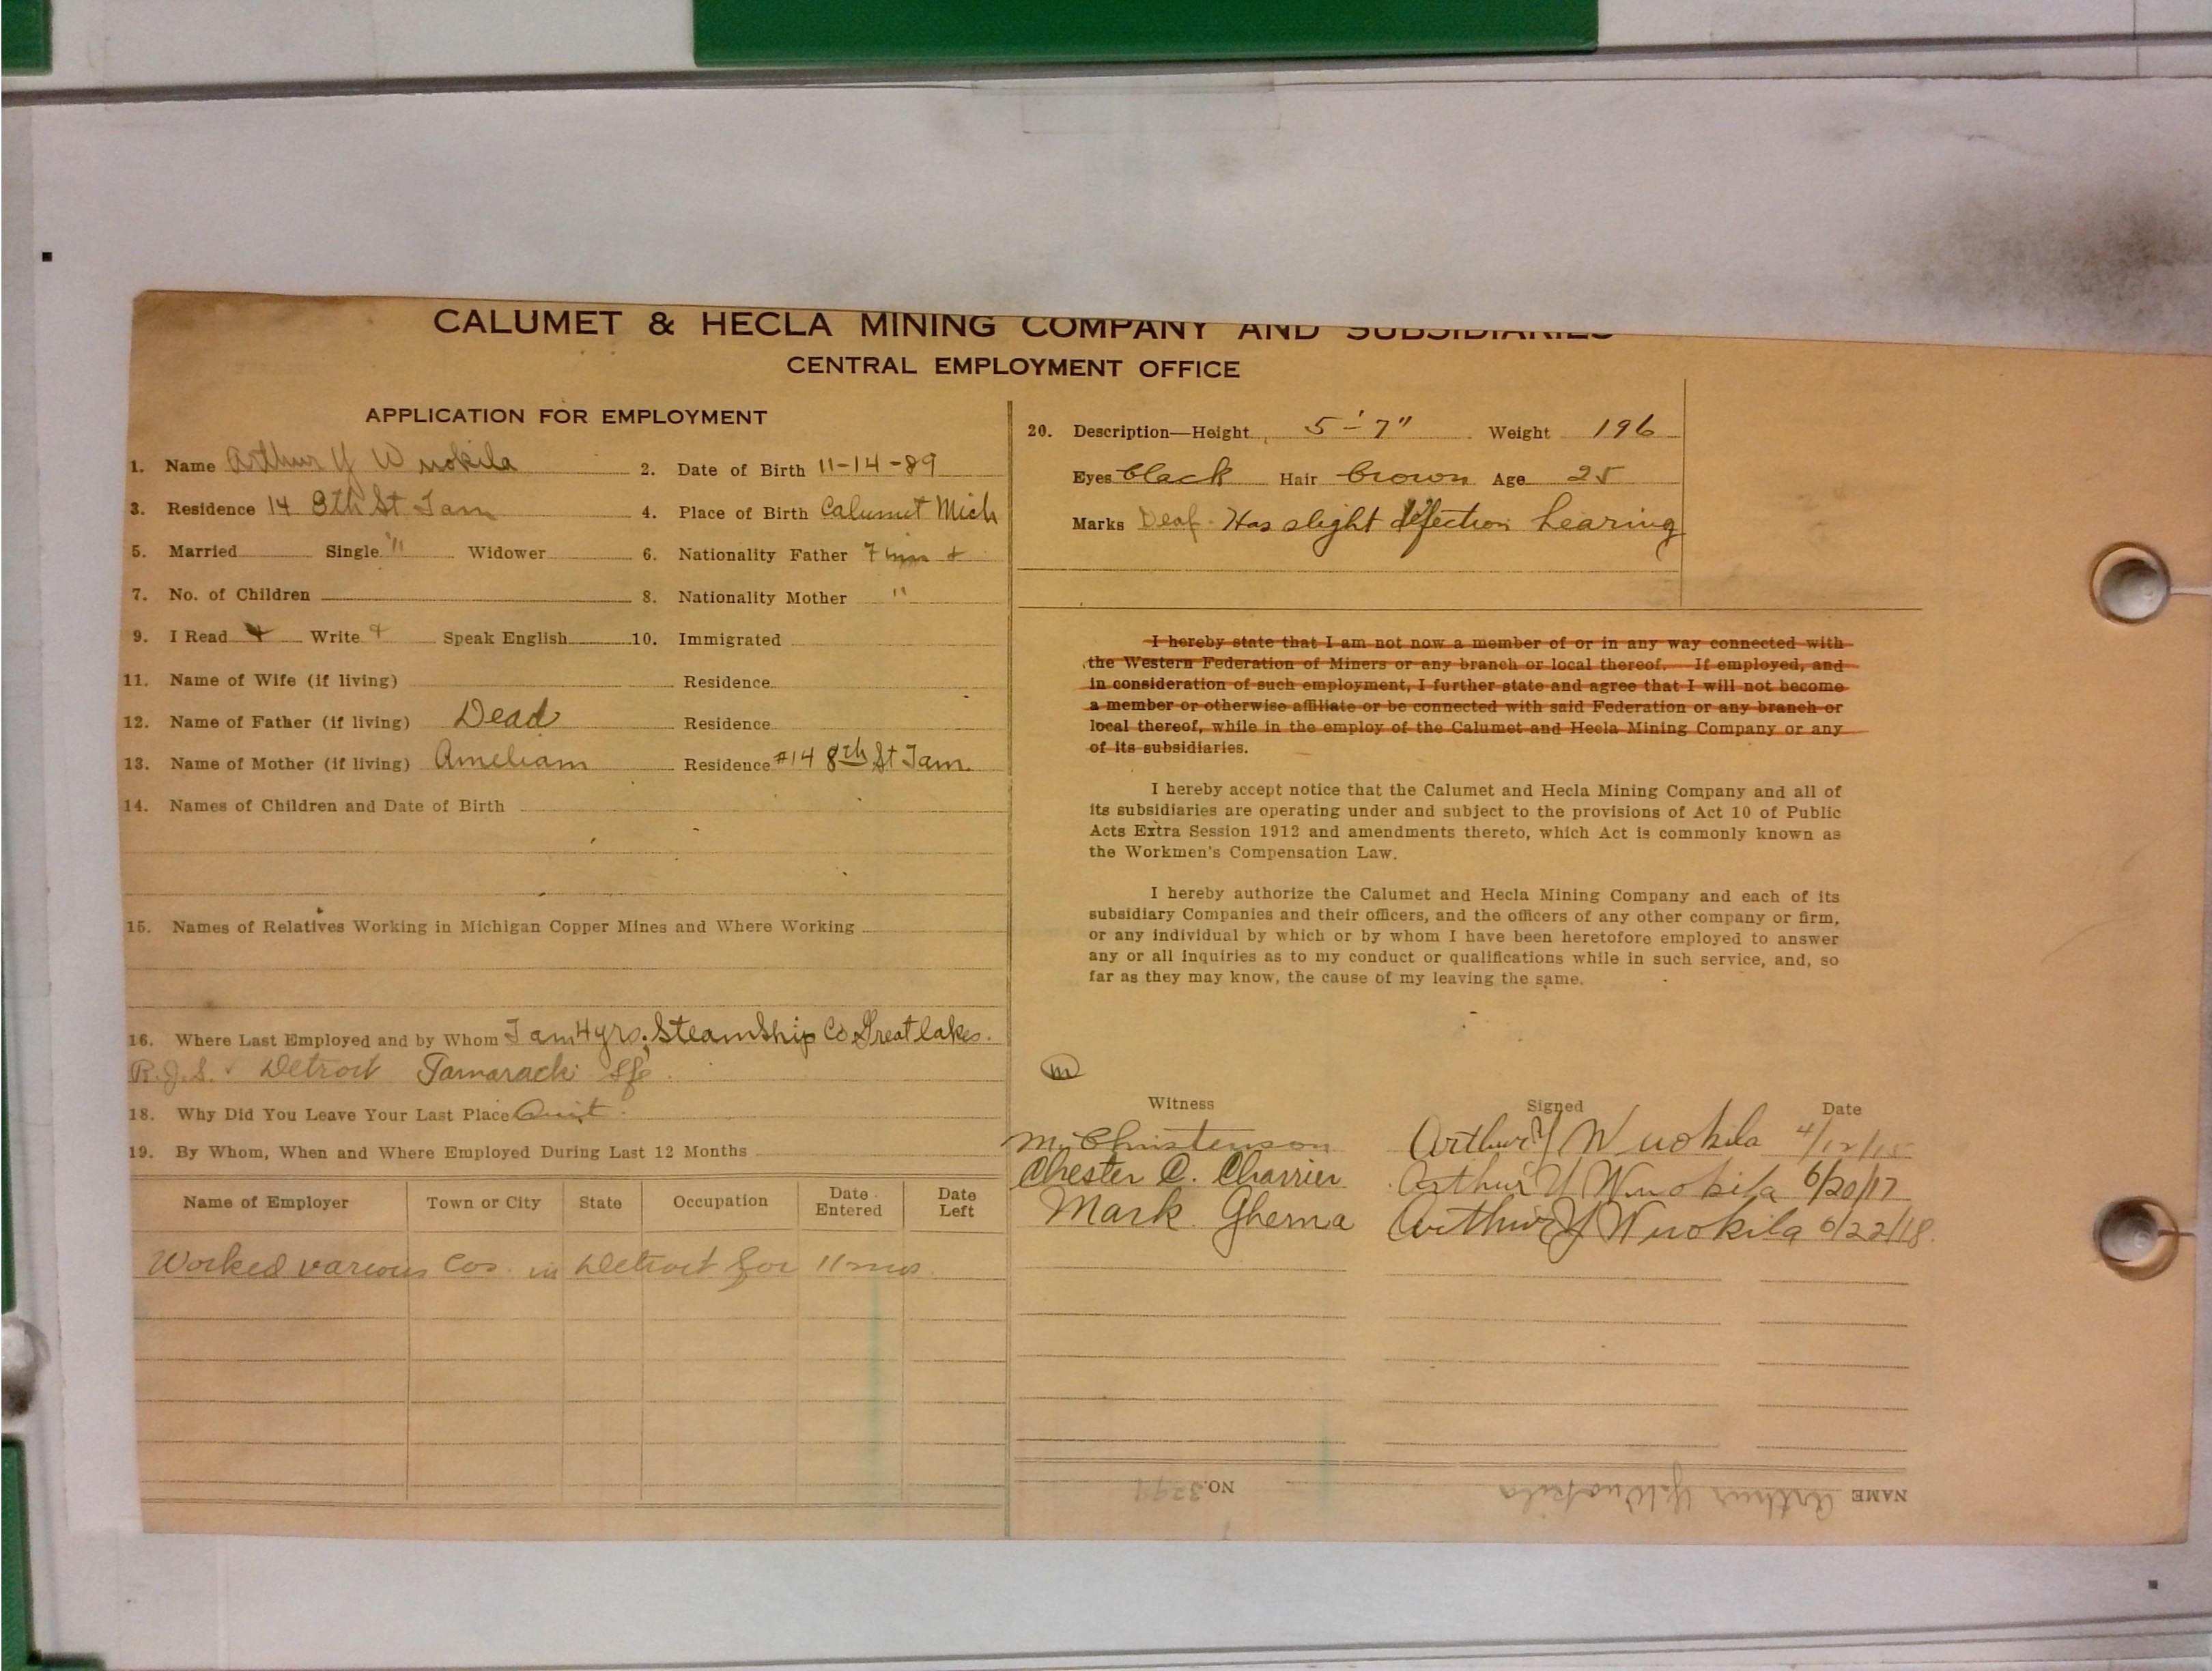 CALUMET & HECLA MINING COMPANY AND SUBSIDIARIES
CENTRAL EMPLOYMENT OFFICE
APPLICATION FOR EMPLOYMENT
1. Name Arthur Y Wuokila 2. Date of Birth 11-14-89
3. Residence 14 8th St Tam 4. Place of Birth Calumet Mich
5. Married Single " Widower 6. Nationality Father Finn +
7. No. of Children 8. Nationality Mother "
9. I Read + Write + Speak English 10. Immigrated
11. Name of Wife (if living) Residence
12. Name of Father (if living) Dead Residence
13. Name of Mother (if living) Ameliam Residence #14 8th St Tam
14. Names of Children and Date of Birth
15. Names of Relatives Working in Michigan Copper Mines and Where Working
16. Where Last Employed and by Whom Tam 4 yrs; Steamship Co Great lakes.
R.J.S. Detroit Tamarack
18. Why Did You Leave Your Last Place Quit.
19. By Whom, When and Where Employed During Last 12 Months
Name of Employer Town or City State Occupation Date Entered Date Left
Worked various Cos. in Detroit for 11 mos.
20. Description—Height 5'-7" Weight 196
Eyes black Hair brown Age 25
Marks Deaf. Has slight defection hearing
I hereby state that I am not now a member of or in any way connected with
the Western Federation of Miners or any branch or local thereof. If employed, and
in consideration of such employment, I further state and agree that I will not become
a member or otherwise affiliate or be connected with said Federation or any branch or
local thereof, while in the employ of the Calumet and Hecla Mining Company or any
of its subsidiaries.
I hereby accept notice that the Calumet and Hecla Mining Company and all of
its subsidiaries are operating under and subject to the provisions of Act 10 of Public
Acts Extra Session 1912 and amendments thereto, which Act is commonly known as
the Workmen's Compensation Law.
I hereby authorize the Calumet and Hecla Mining Company and each of its
subsidiary Companies and their officers, and the officers of any other company or firm,
or any individual by which or by whom I have been heretofore employed to answer
any or all inquiries as to my conduct or qualifications while in such service, and, so
far as they may know, the cause of my leaving the same.
m
Witness Signed Date
M. Christenson Arthur Y Wuokila 4/12/15
Chester C. Charrier Arthur Y Wuokila 6/20/17
Mark Gherna Arthur Y Wuokila 6/22/18.
NAME Arthur Y. Wuokila NO.